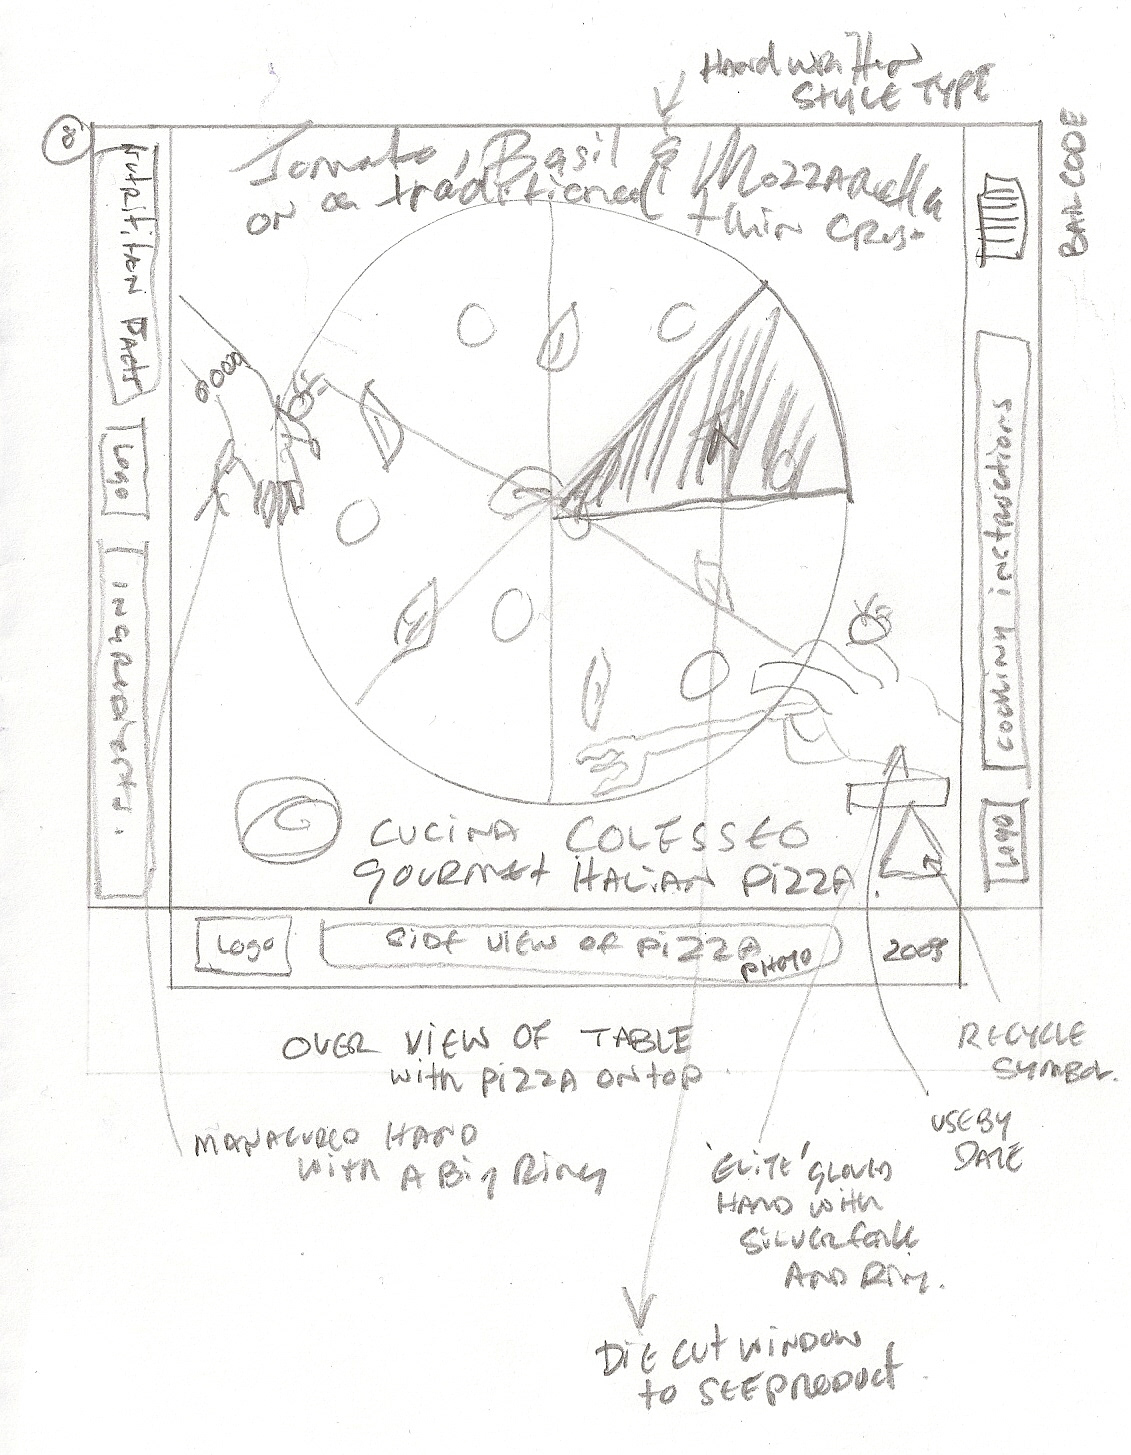 Handwritten
STYLE TYPE
8
Tomato, Basil & Mozzarella
on a traditional thin CRUST
BAR CODE
NUTRITION FACTS
LOGO
INGREDIENTS.
COOKING INSTRUCTIONS
LOGO
CUCINA COLESSEO
GOURMET ITALIAN PIZZA.
Logo
SIDE VIEW OF PIZZA
PHOTO
OVER VIEW OF TABLE
with PIZZA ON TOP
RECYCLE
SYMBOL.
USE BY
DATE
MANACURED HAND
with A Big RING
'ELITE' GLOVED
HAND with
SILVER FORK
AND RING.
DIE CUT WINDOW
to SEE PRODUCT